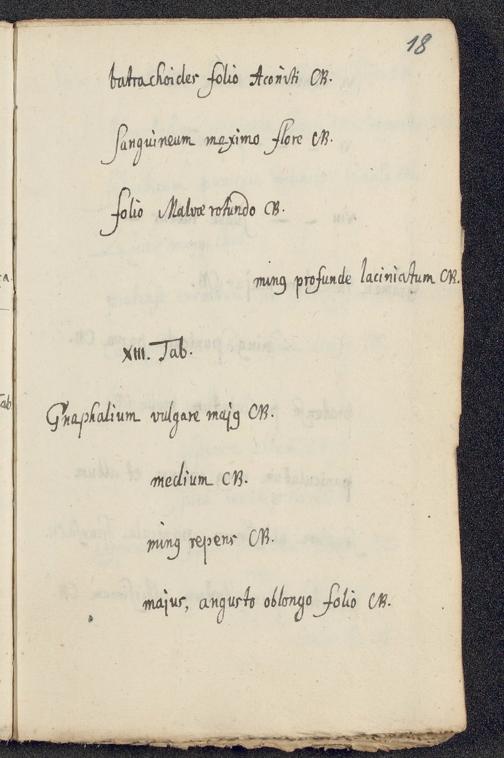 18
batrachoides folio Aconiti CB.
sanguineum maximo flore CB.
folio Malvæ rotundo CB.
minꝯ profunde laciniatum CB.
XIII. Tab.
Gnaphalium vulgare majꝯ CB.
medium CB.
minꝯ repens CB.
majus, angusto oblongo folio CB.